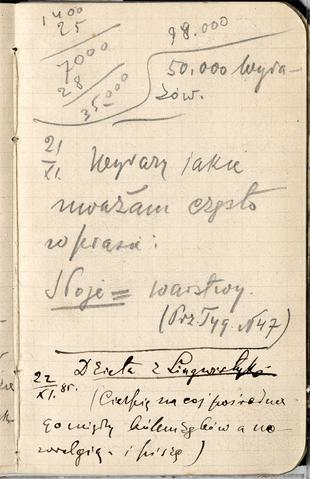 1400
25
7000
28
35000
98.000
50.000 Wyra-
zów.
21
XI.
Wyrazy jakie
uważam często
w prasie:
Słoje = warstwy.
(Prz. Tyg. N 47)
22
XI. 85.
Dzieła z Lingwistyki
(Cierpię na coś pośrednie
go między bólem zębów a ne
wralgią - i piszę)